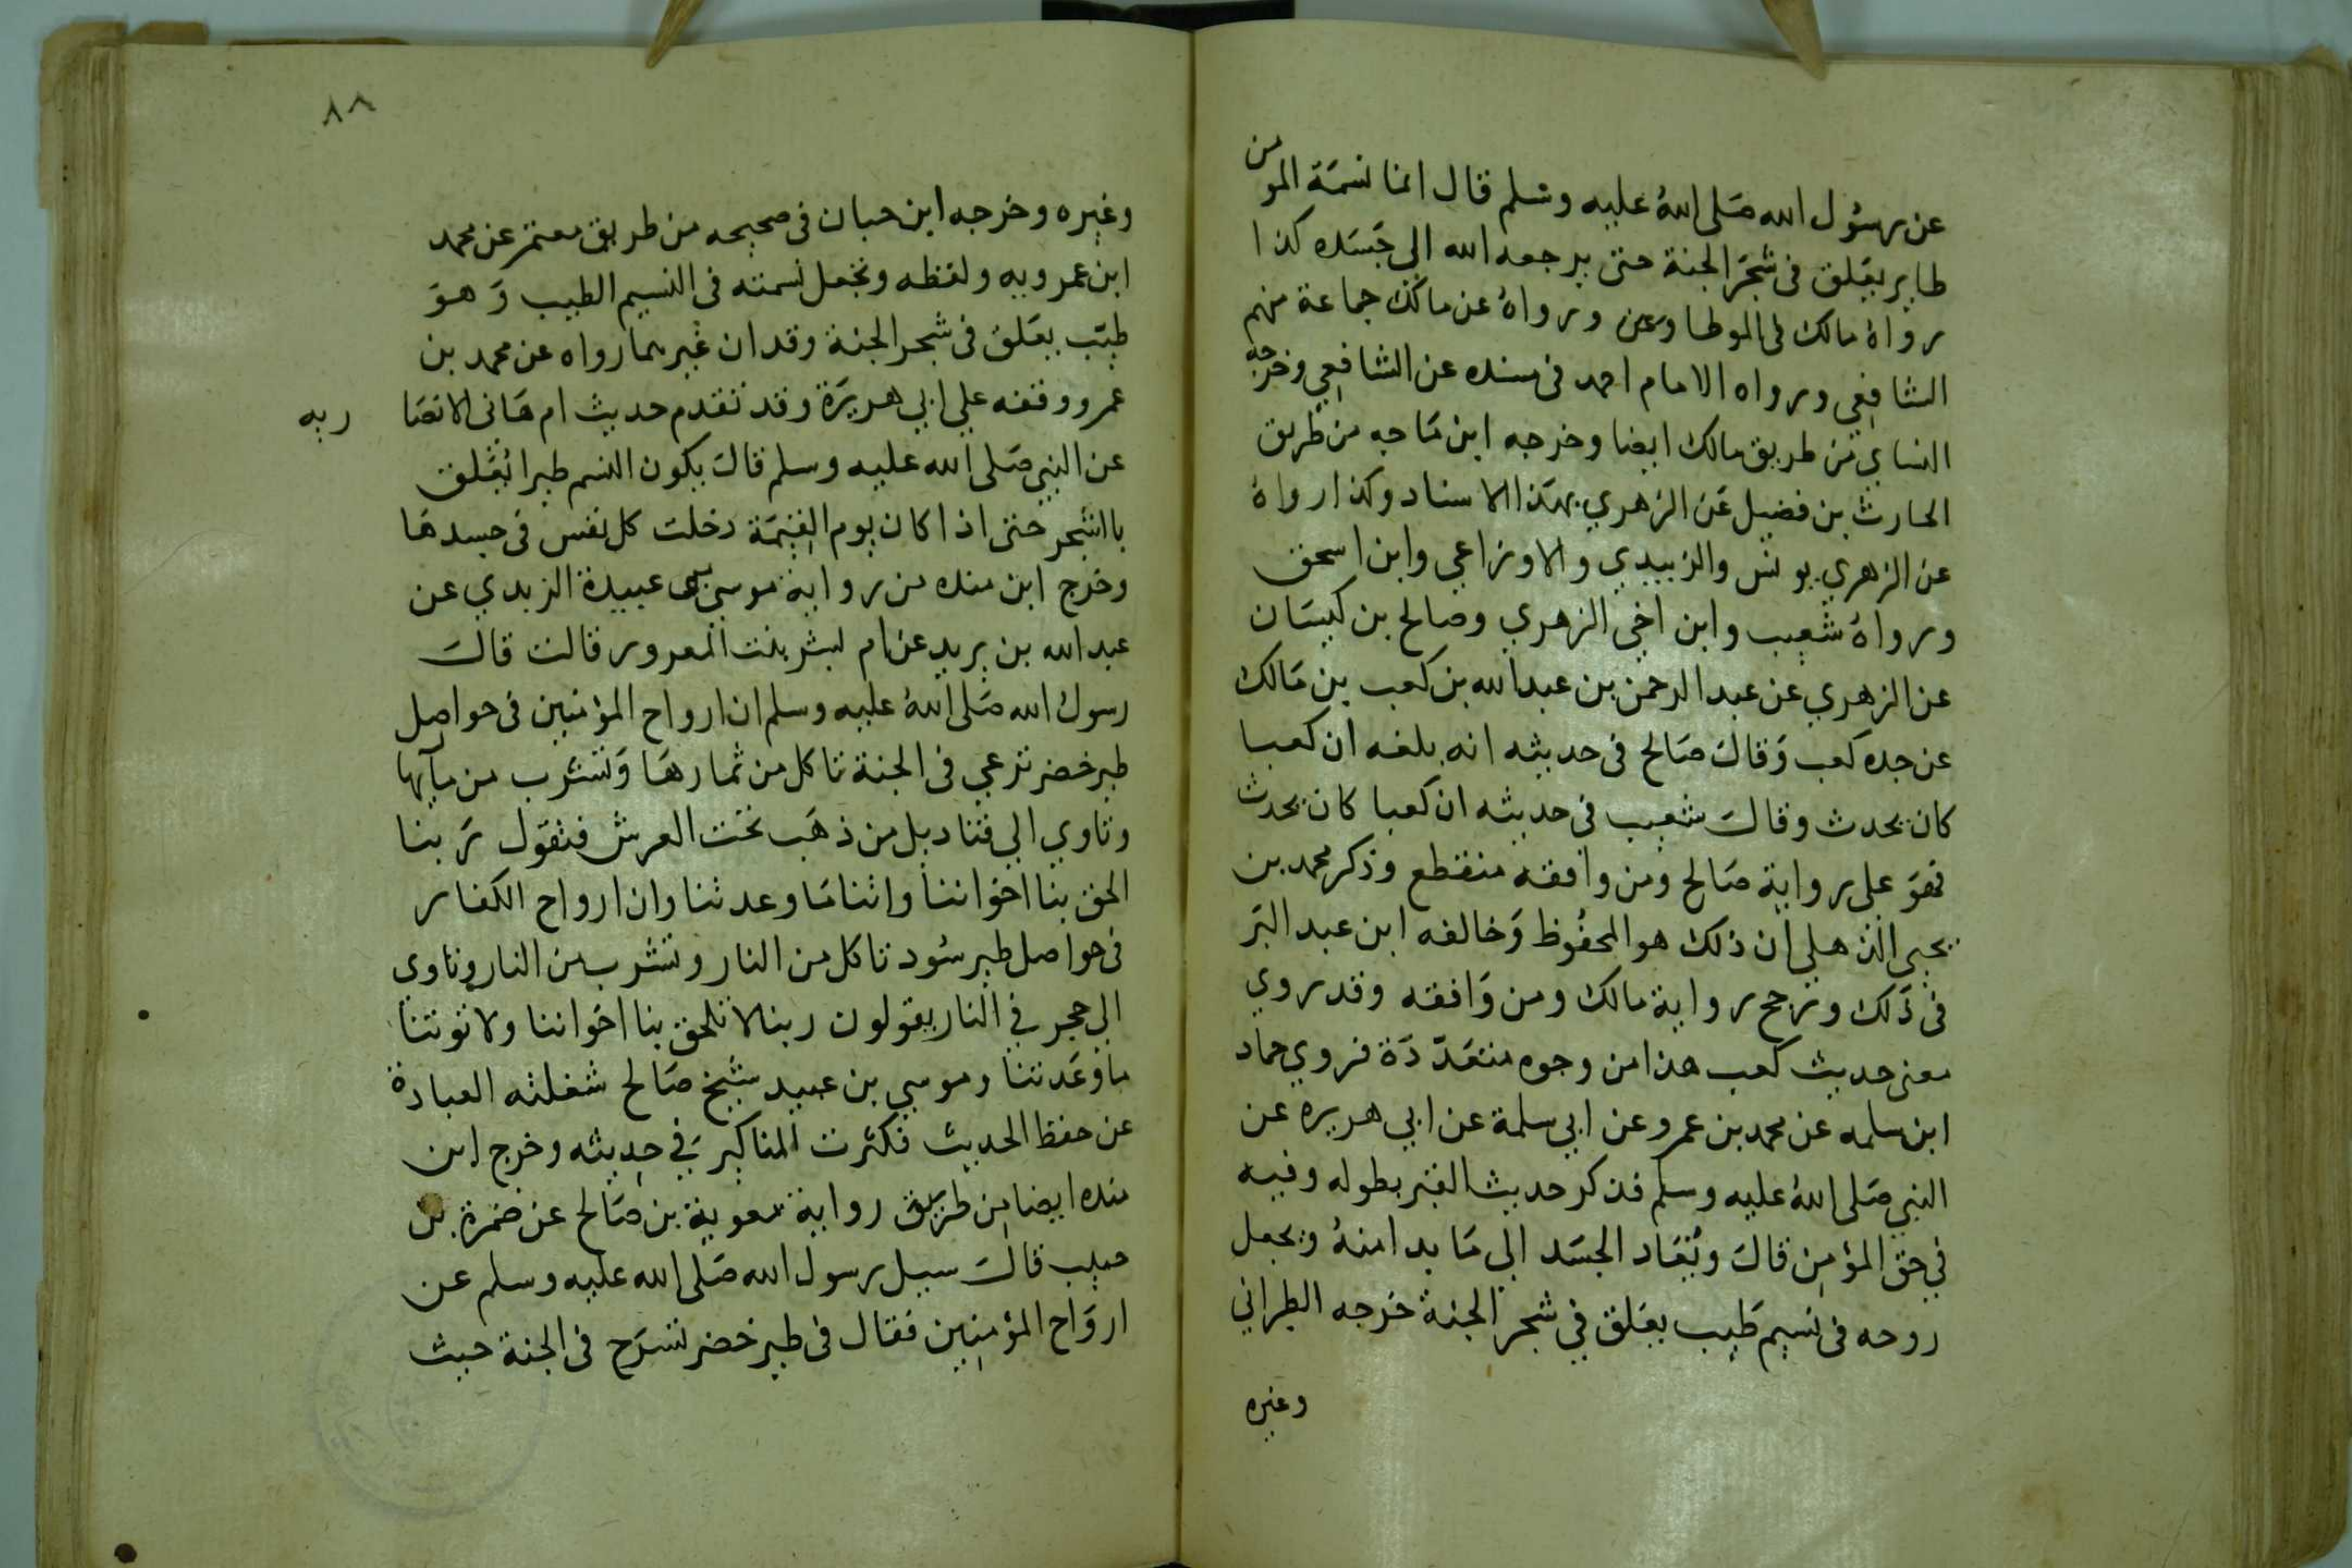 عن رسول الله صلى الله عليه وسلم قال انما نسمة المومن
طاير يعلق في شجر الجنة حتى يرجعه الله الى جسده كذا
رواه مالك في الموطا وعن ورواه عن مالك جماعة منهم
الشافعي ورواه الامام احمد في مسنده عن الشافعي وخرجه
النساي من طريق مالك ايضا وخرجه ابن ماجه من طريق
الحارث بن فضيل عن الزهري بهذا الاسناد وكذا رواه
عن الزهري يونس والزبيدي والاوزاعي وابن اسحق
ورواه شعيب وابن اخي الزهري وصالح بن كيسان
عن الزهري عن عبد الرحمن بن عبد الله بن كعب بن مالك
عن جده كعب وقال صالح في حديثه انه بلغه ان كعبا
كان يحدث وقال شعيب في حديثه ان كعبا كان يحدث
فهو على رواية صالح ومن وافقه منقطع وذكر محمد بن
يحيى الذهلي ان ذلك هو المحفوظ وخالفه ابن عبد البر
في ذلك ورجح رواية مالك ومن وافقه وقد روي
معنى حديث كعب هذا من وجوه متعددة فروي حماد
ابن سلمه عن محمد بن عمرو عن ابي سلمة عن ابي هريره عن
النبي صلى الله عليه وسلم فذكر حديث القبر بطوله وفيه
في حق المؤمن قال ويعاد الجسد الى ما بدا منه ويجعل
روحه في نسيم طيب يعلق في شجر الجنة خرجه الطبراني
وغيره
٨٨
وغيره وخرجه ابن حبان في صحيحه من طريق معتمر عن محمد
ابن عمرو به ولفظه وتجعل نسمته في النسيم الطيب وهو
طير يعلق في شجر الجنة وقد ان غير بما رواه عن محمد بن
عمرو وقفه علي ابي هريرة وقد تقدم حديث ام هانى الانصا ريه
عن النبي صلى الله عليه وسلم قال يكون النسم طيرا تعلق
بالشجر حتى اذا كان يوم القيمة دخلت كل نفس في جسدها
وخرج ابن منده من رواية موسى بن عبيدة الزبدي عن
عبد الله بن يريد عن ام لبشر بنت المعرور قالت قال
رسول الله صلى الله عليه وسلم ان ارواح المؤمنين في حواصل
طير خضر ترعي في الجنة تاكل من ثمارها وتشرب من مآيها
وتاوي الي قناديل من ذهب تحت العرش فتقول ربنا
الحق بنا اخواننا واتنا ما وعدتنا وان ارواح الكفار
في حواصل طير سود تاكل من النار وتشرب من النار وتاوى
الى حجر في النار يقولون ربنا لا تلحق بنا اخواننا ولا توتنا
ما وعدتنا وموسي بن عبيد شيخ صالح شغلته العبادة
عن حفظ الحديث فكثرت المناكير في حديثه وخرج ابن
منده ايضا من طريق رواية معوية بن صالح عن ضمرة بن
حبيب قال سيل رسول الله صلى الله عليه وسلم عن
ارواح المؤمنين فقال في طير خضر تسرح في الجنة حيث